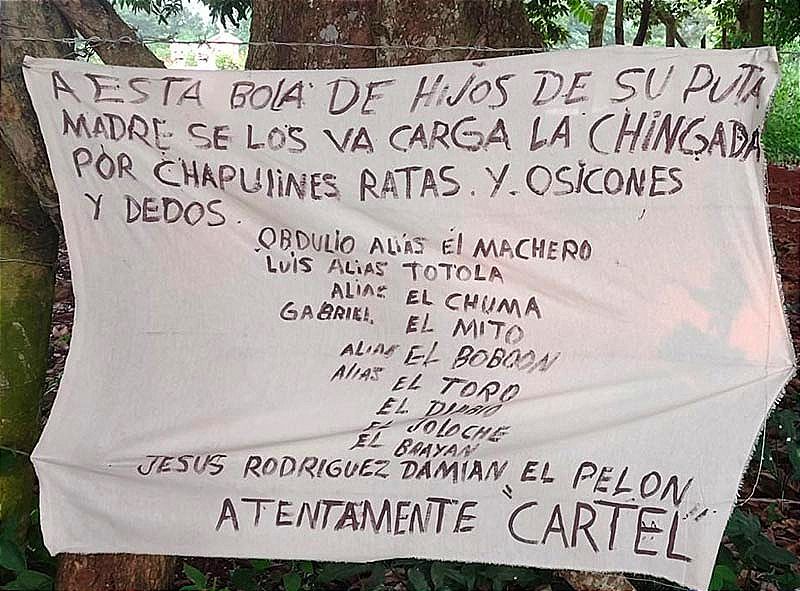 A ESTA BOLA DE HIJOS DE SU PUTA
MADRE SE LOS VA CARGA LA CHINGADA
POR CHAPULINES RATAS. Y. OSICONES
Y DEDOS.
OBDULIO ALIAS El MACHERO
LUIS ALIAS TOTOLA
ALIAS EL CHUMA
GABRIEL EL MITO
ALIAS EL BOBOON
ALIAS EL TORO
EL DIABLO
EL JOLOCHE
EL BRAYAN
JESUS RODRIGUEZ DAMIAN EL PELON
ATENTAMENTE "CARTEL"